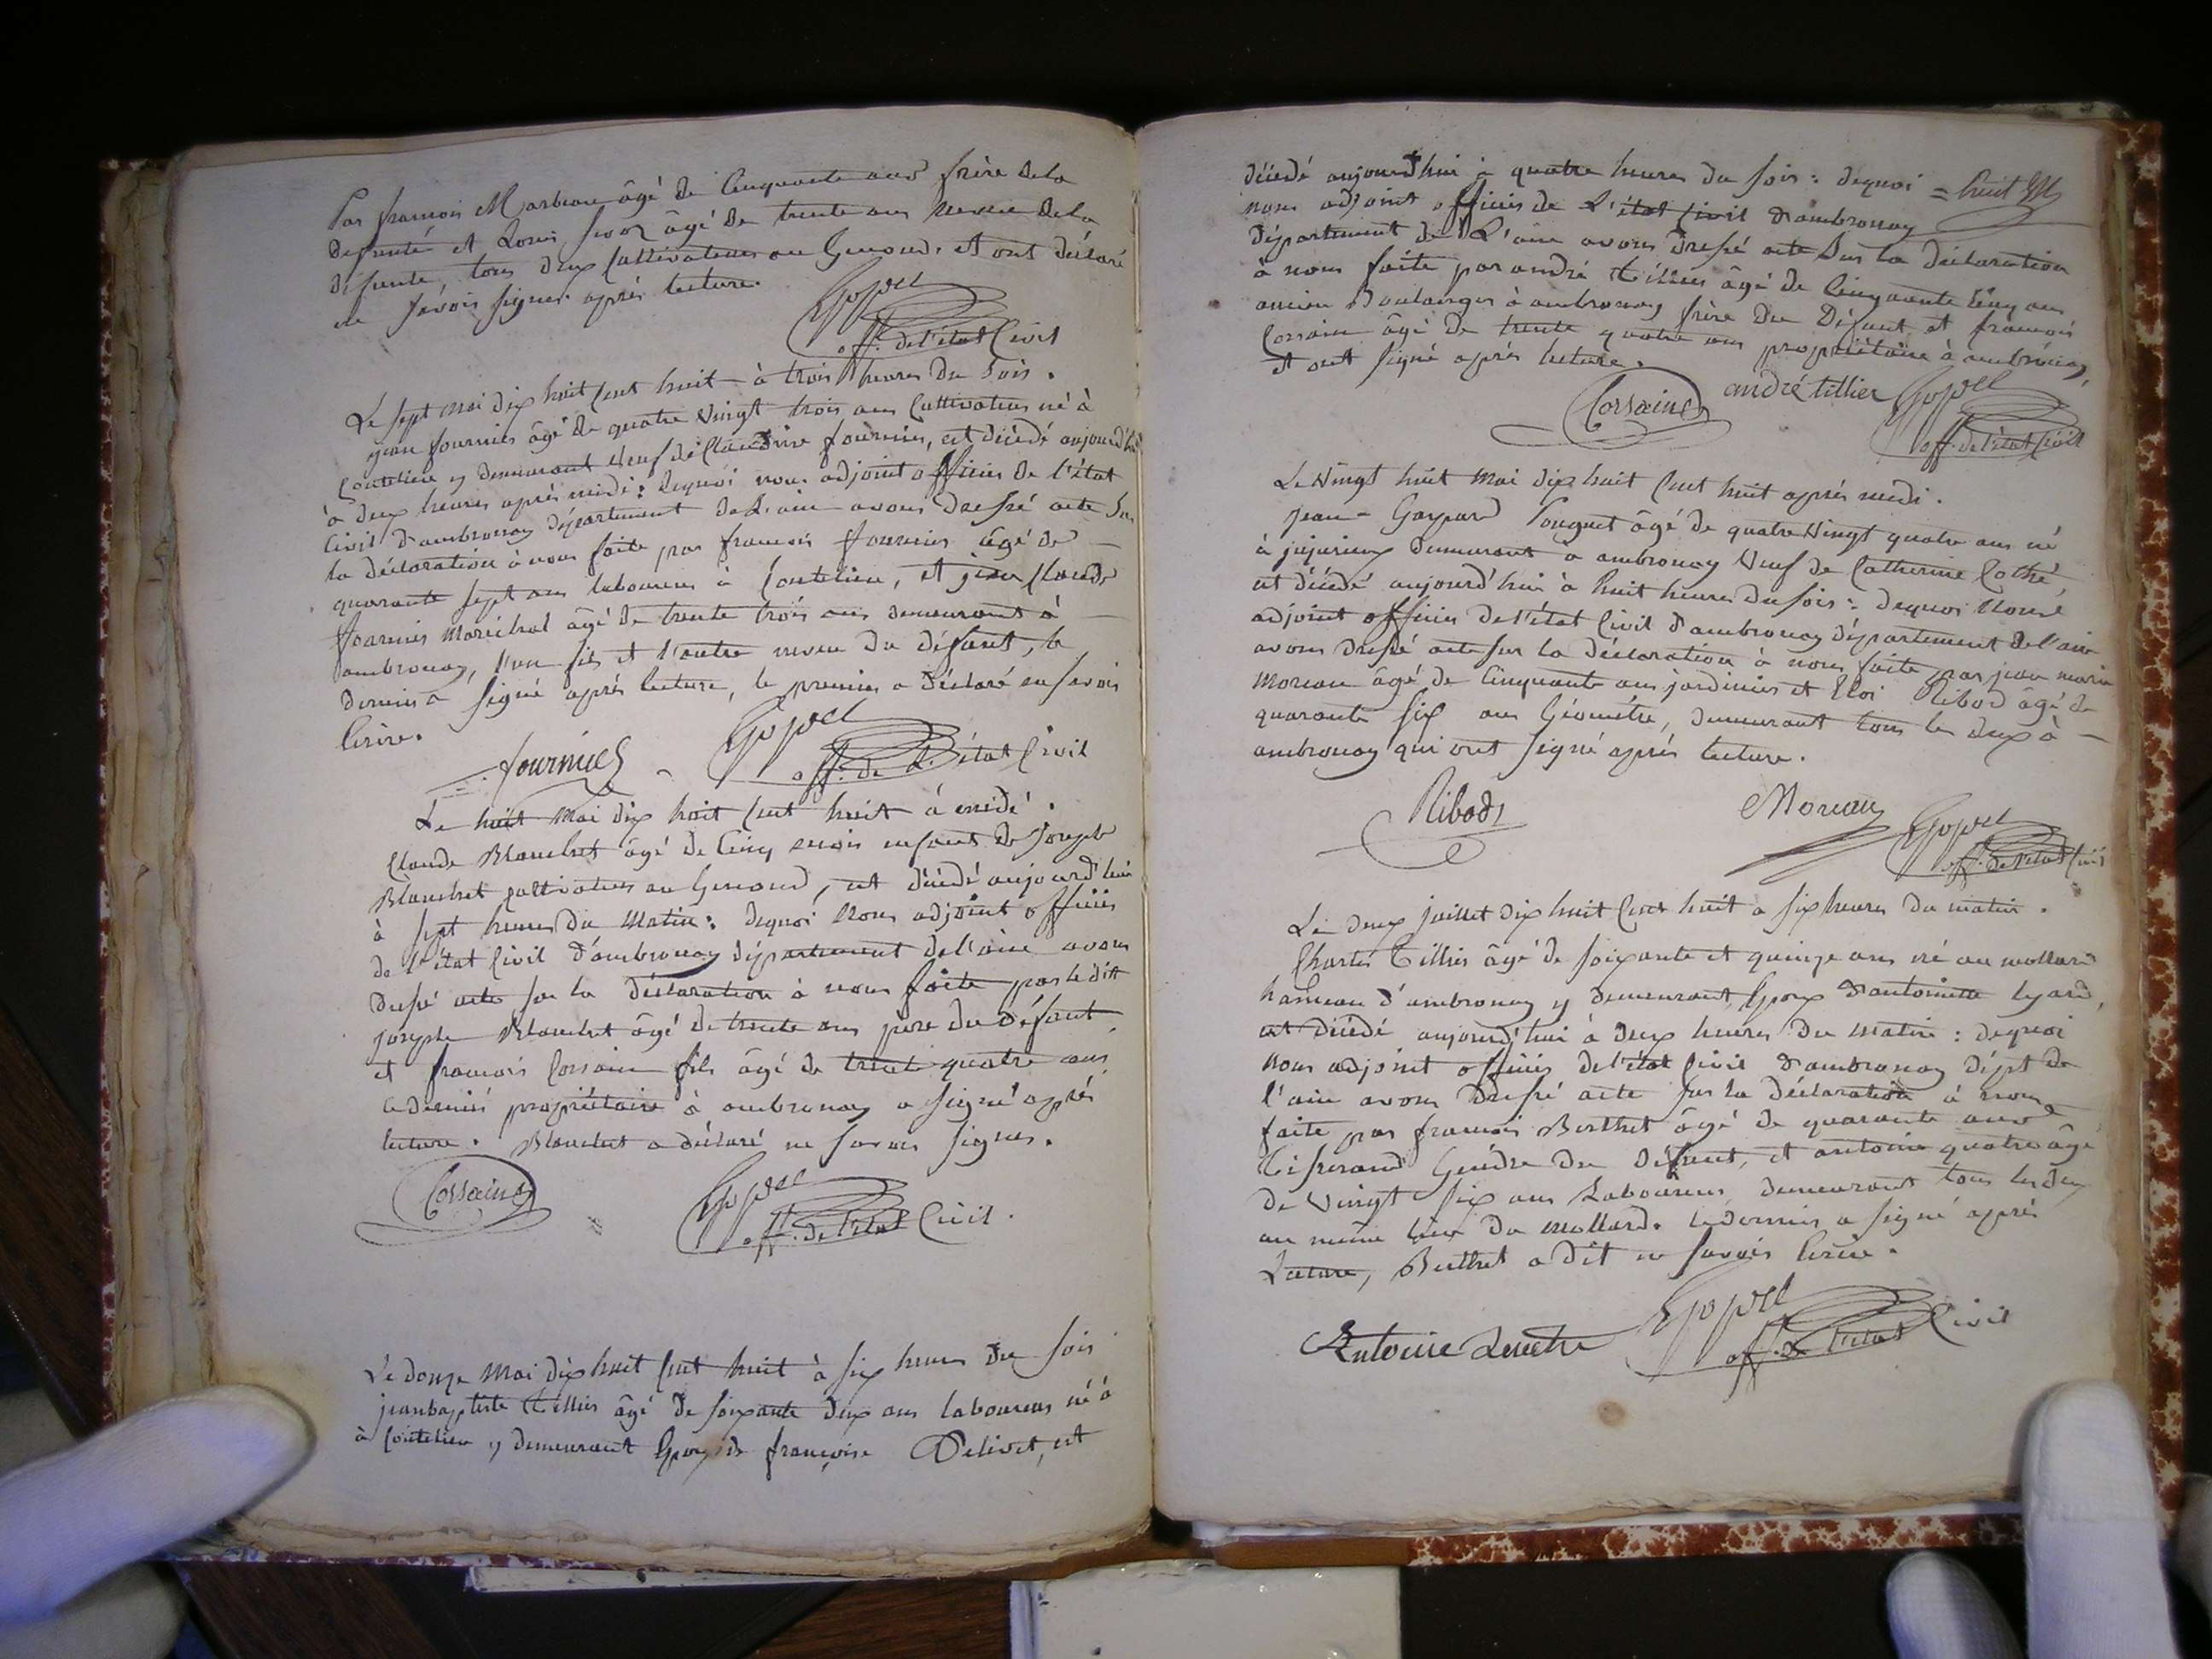 Par françois Marbeau âgé de Cinquante ans frère de la
défunte et Louis âgé de trente ans neveu de la
défunte, tous deux Cultivateurs au Genoud. et ont déclaré
ne savoir signer après lecture.
off. de l'état Civil
Le sept mai dix huit Cent huit à trois heures du soir.
jean fournier âgé de quatre vingt trois ans Cultivateur né à
Coutelieu y demeurant veuf de Claudine fournier, est décédé aujourd'hui
à deux heures après midi : dequoi nous adjoint officier de l'état
Civil d'ambronay département de L'ain avons dressé acte sur
la déclaration à nous faite par françois fournier âgé de
quarante sept ans laboureur à Coutelieu, et jean Claude
fournier maréchal âgé de trente trois ans demeurant à
ambronay, l'un fils et l'autre neveu du défunt, le
dernier a signé après lecture, le premier a déclaré ne savoir
écrire.
fournier
off. de L'état Civil
Le huit mai dix huit Cent huit à midi.
Claude Blanchet âgé de Cinq mois enfant de Joseph
Blanchet cultivateur au Genoud, est décédé aujourd'hui
à sept heures du matin : dequoi Nous adjoint officier
de l'état Civil d'ambronay département de l'ain avons
dressé acte sur la déclaration à nous faite par ledit
joseph Blanchet âgé de trente ans père du défunt,
et françois Corsain fils âgé de trente quatre ans
ce dernier propriétaire à ambronay a signé après
lecture. Blanchet a déclaré ne savoir signer.
Corsain
off. de l'état Civil.
Le douze Mai dix huit Cent huit à six heures du soir
jean baptiste tillier âgé de soixante deux ans laboureur né à
à Coutelieu y demeurant Epoux de françoise Delivet, est
décédé aujourd'hui à quatre heures du soir : dequoi = huit
nous adjoint officier de L'état Civil d'ambronay
département de L'ain avons dressé acte Sur la déclaration
à nous faite par andré tillier âgé de Cinquante Cinq ans
ancien Boulanger à ambronay frère du Défunt et françois
Corsain âgé de trente quatre ans propriétaire à ambronay,
et ont signé après lecture.
Corsain andré tillier
off. de l'état Civil
Le vingt huit mai dix huit Cent huit après midi.
Jean-Gaspard Pouguet âgé de quatre vingt quatre ans né
à jujurieux demeurant à ambronay veuf de Catherine Cothé,
est décédé aujourd'hui à huit heures du soir : dequoi Nous
adjoint officier de l'état Civil d'ambronay département de l'ain
avons dressé acte sur la déclaration à nous faite par jean marie
moreau âgé de Cinquante ans jardinier et Eloi Ribod âgé de
quarante six ans Géomètre, demeurant tous les deux à
ambronay qui ont signé après lecture.
Ribod Moreau
off. de l'état Civil
Le deux juillet dix huit Cent huit à six heures du matin.
Charles Tillier âgé de soixante et quinze ans né au mollard
hameau d'ambronay y demeurant, Epoux d'antoinette Lyard,
est décédé aujourd'hui à deux heures du matin : dequoi
nous adjoint officier de l'état Civil d'ambronay dépt de
l'ain avons dressé acte sur la déclaration à nous
faite par françois Berthet âgé de quarante ans
tisserand Gendre du défunt, et antoine quatre âgé
de vingt six ans Laboureur, demeurant tous les deux
au même lieu du mollard. le dernier a signé après
Lecture, Berthet a dit ne savoir écrire.
Antoine
off. de l'état Civil